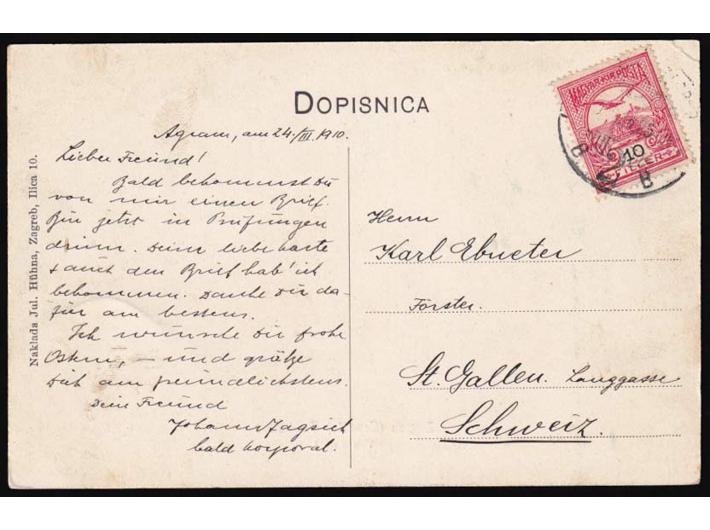 DOPISNICA
Agram, am 24./III. 1910.
Lieber Freund!
Bald bekommst Du
von mir einen Brief.
Bin jetzt in Prüfungen
drinn. Deine liebe Karte
+ auch den Brief hab' ich
bekommen. Danke Dir da-
für am bestens.
Ich wünsche Dir frohe
Ostern, – und grüße
Dich am freundlichstens.
Dein Freund
Johann Jagsich
bald Korporal.
Nakladа Jul. Hühna, Zagreb, Ilica 10.
MAGYAR KIR. POSTA
10
FILLER
B B
Herrn
Karl Ebneter
Förster.
St. Gallen. Langgasse
Schweiz.